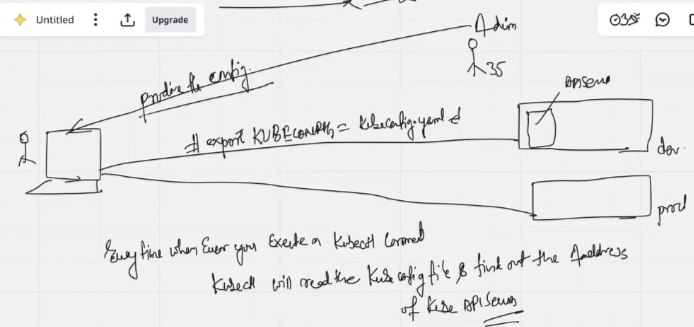 Untitled
Upgrade
Admin
35
provide the config.
API Server
# export KUBECONFIG = kubeconfig.yaml
dev
prod
Every time when Ever you Execute a Kubectl Command
Kubectl will read the Kube config file & find out the Address
of Kube API Server